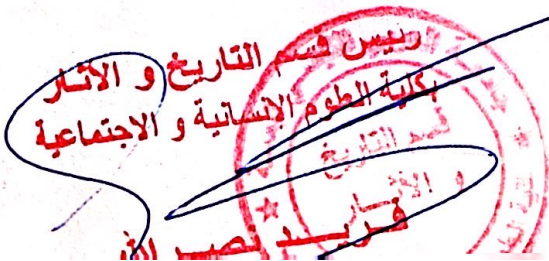 رئيس قسم التاريخ و الآثار
بكلية العلوم الإنسانية و الاجتماعية
قسم التاريخ
و الآثار
فريد نصر الله